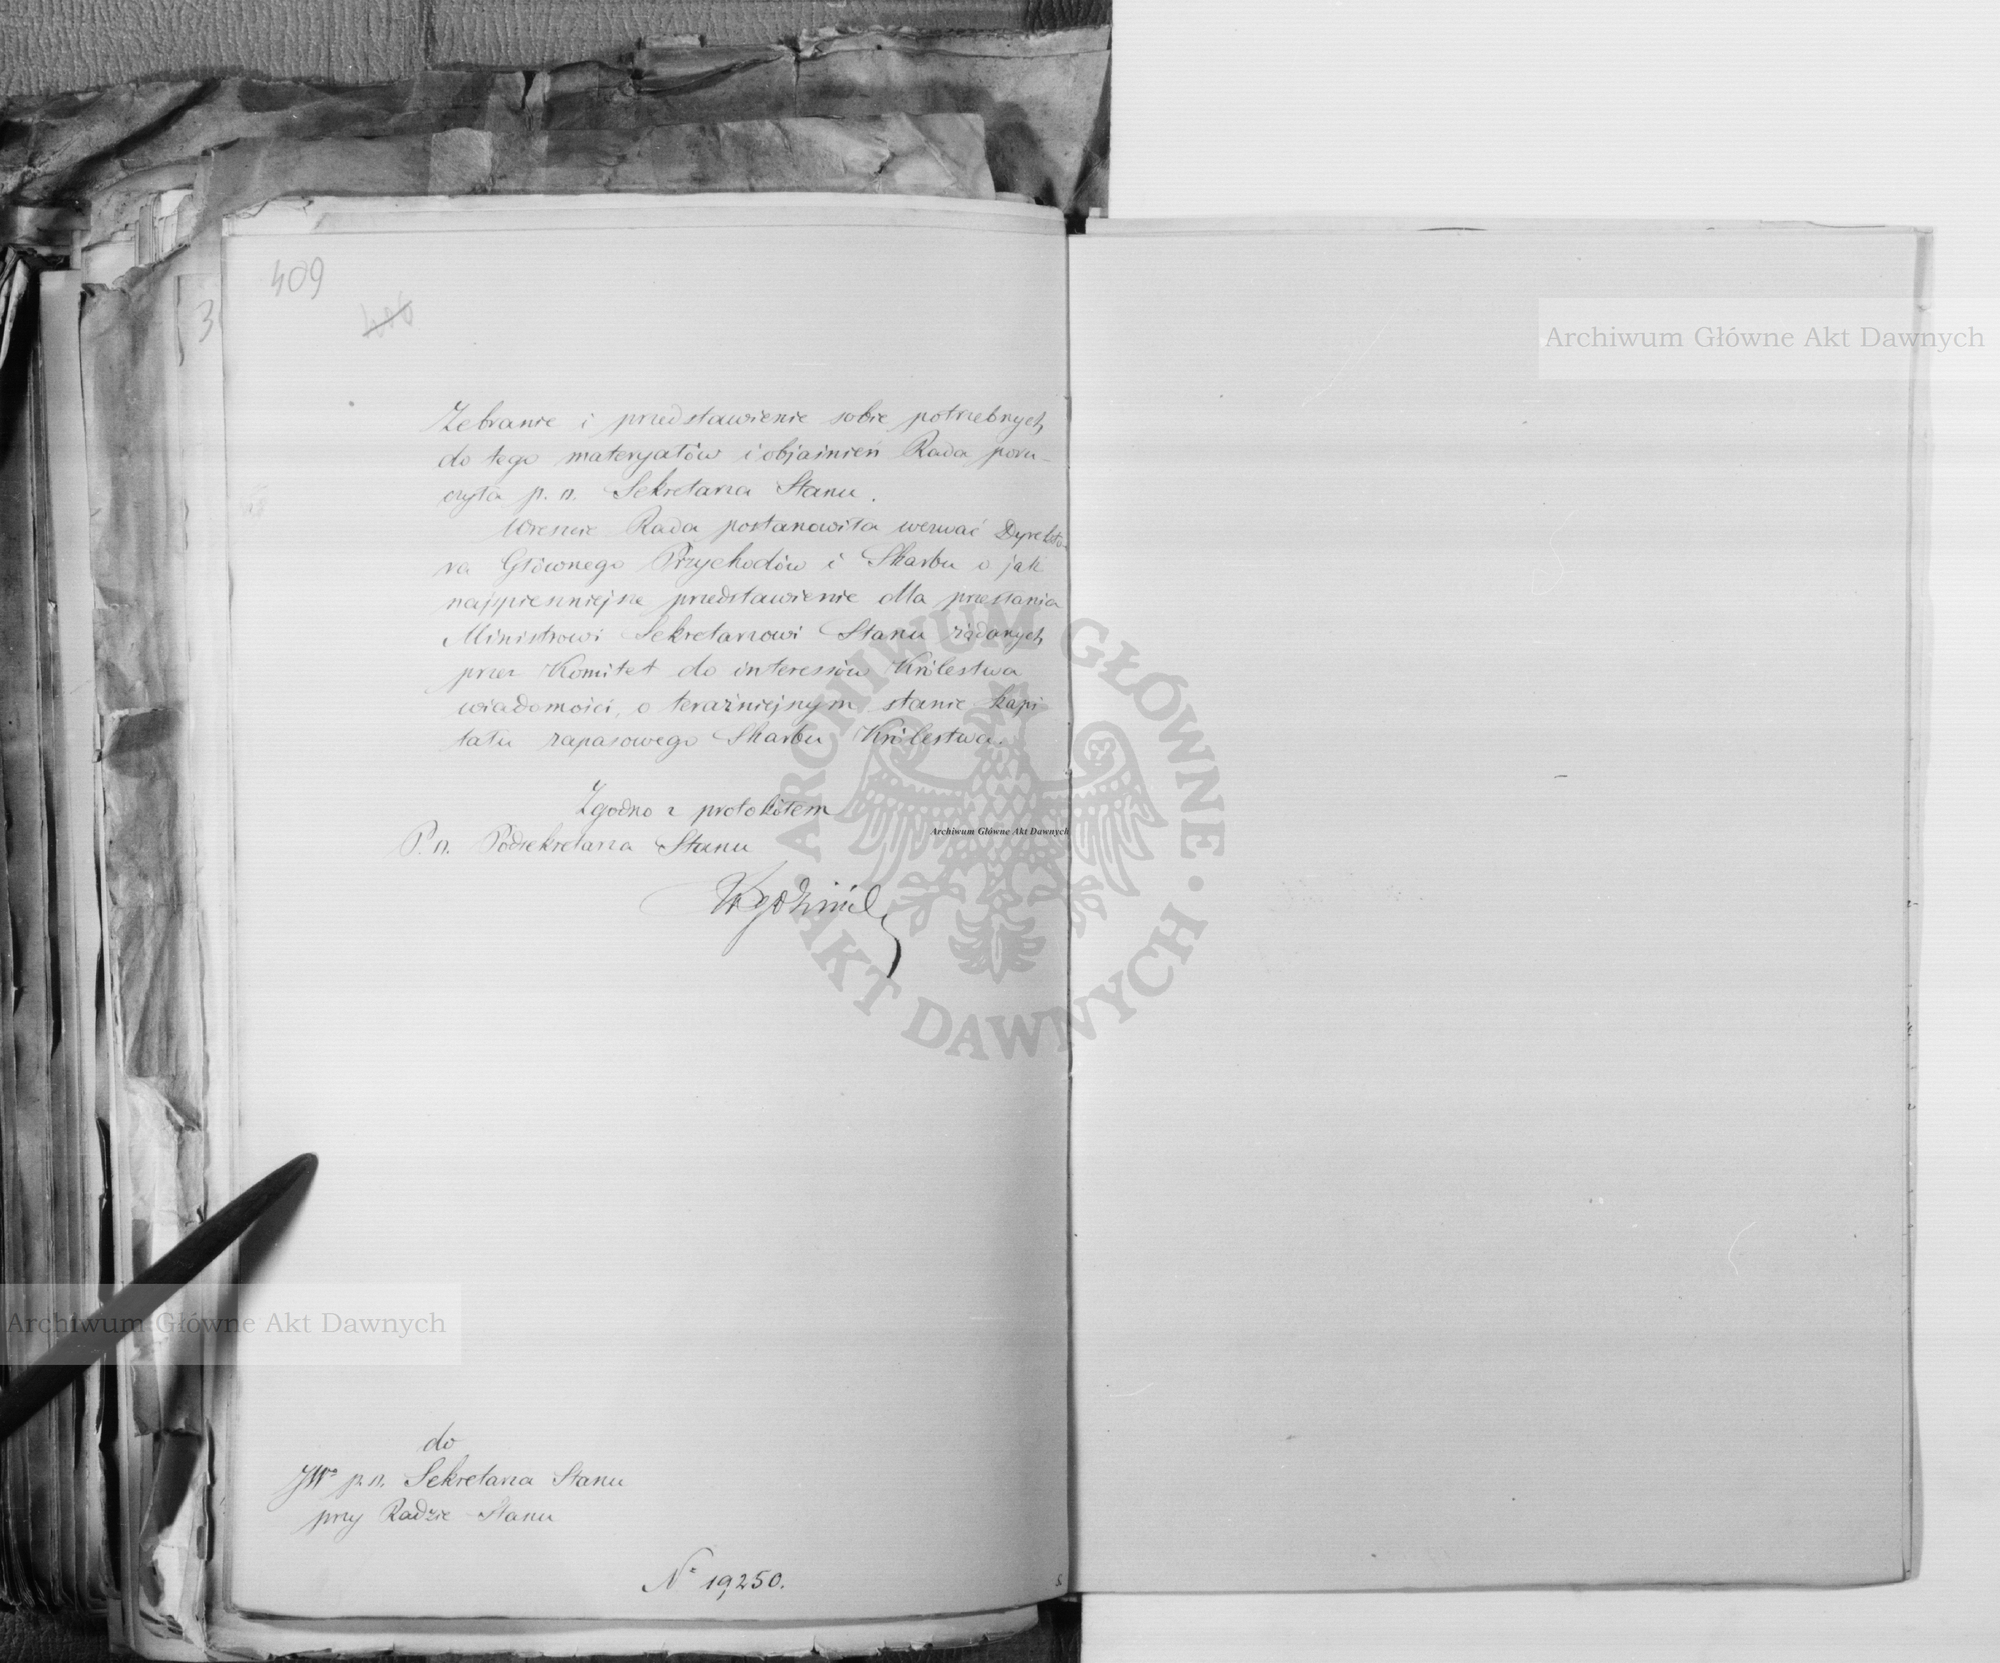 409
3
Zebranie i przedstawienie sobie potrzebnych
do tego materyałów i objaśnień Rada poru-
czyła p. o. Sekretarza Stanu.
Wreszcie Rada postanowiła wezwać Dyrekto-
ra Głównego Przychodów i Skarbu o jak
najspieszniejsze przedstawienie dla przesłania
Ministrowi Sekretarzowi Stanu żądanych
przez Komitet do interessów Królestwa
wiadomości, o teraźniejszym stanie kapi
tału zapasowego Skarbu Królestwa.
Zgodno z protokółem
P. o. Podsekretarza Stanu
do
JW° p. o. Sekretarza Stanu
przy Radzie Stanu
N° 19,250.
Archiwum Główne Akt Dawnych
Archiwum Główne Akt Dawnych
Archiwum Główne Akt Dawnych
ARCHIWUM GŁÓWNE • AKT DAWNYCH •